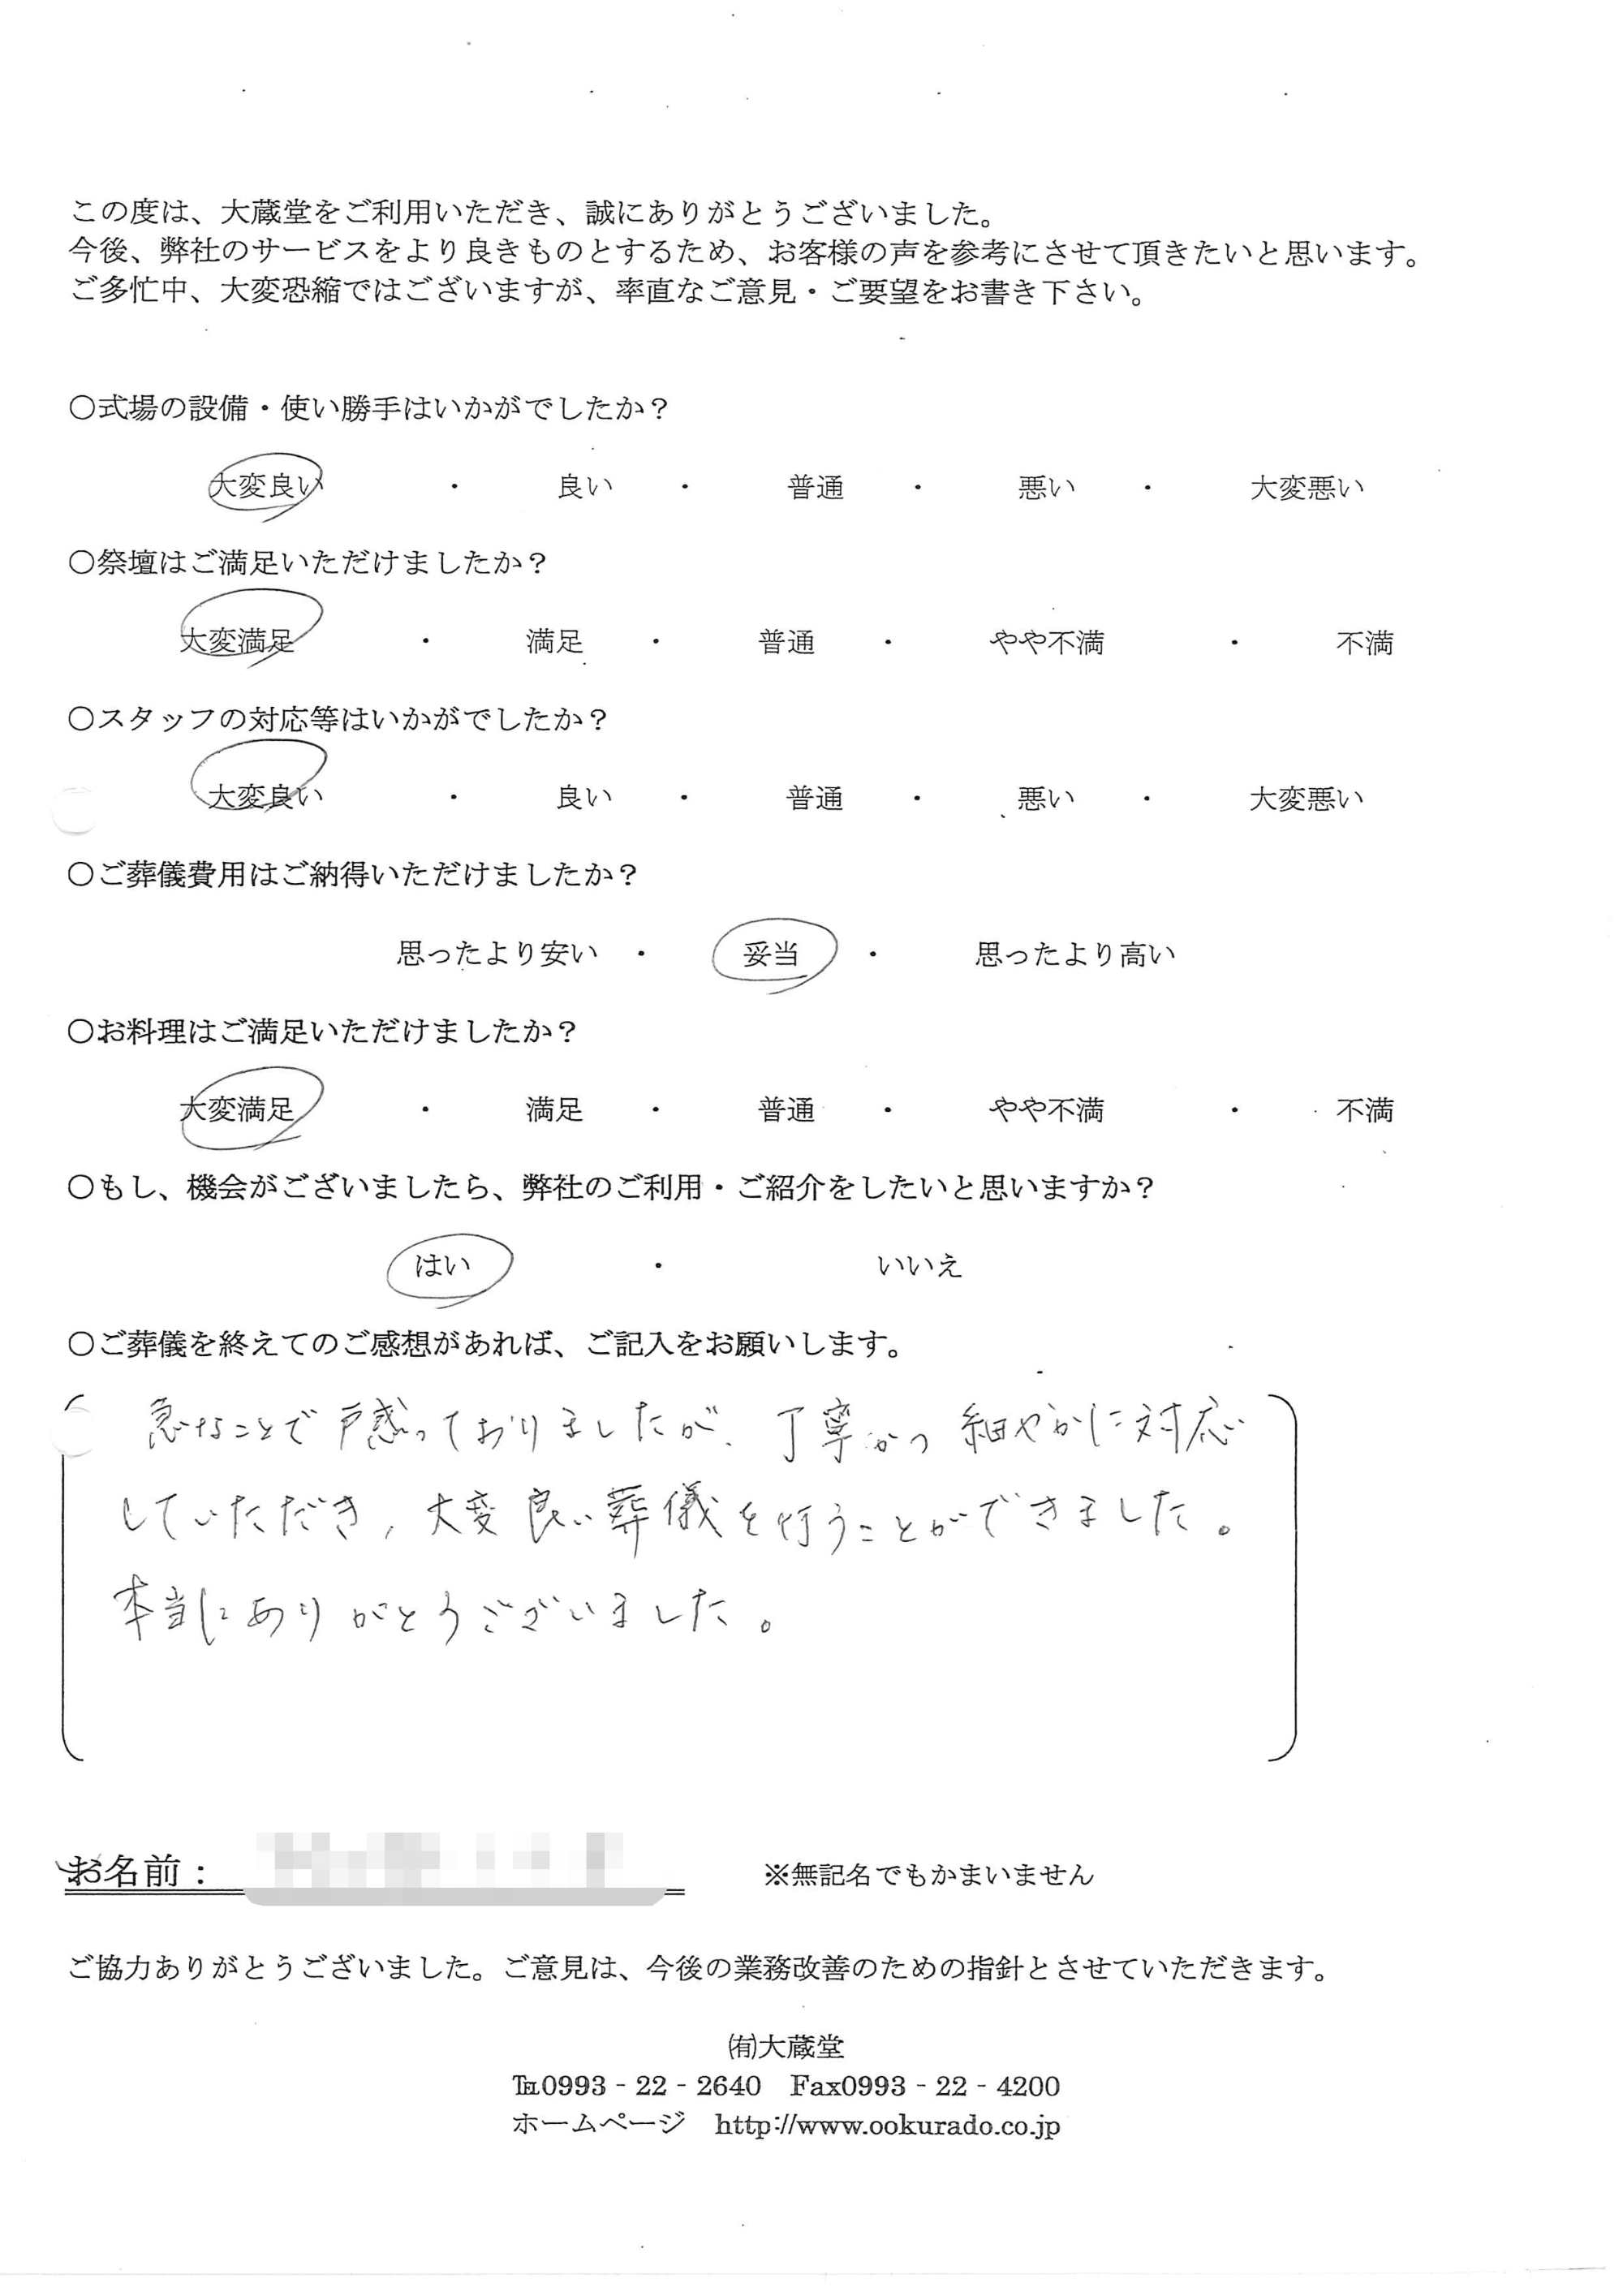 この度は、大蔵堂をご利用いただき、誠にありがとうございました。
今後、弊社のサービスをより良きものとするため、お客様の声を参考にさせて頂きたいと思います。
ご多忙中、大変恐縮ではございますが、率直なご意見・ご要望をお書き下さい。
○式場の設備・使い勝手はいかがでしたか？
大変良い ・ 良い ・ 普通 ・ 悪い ・ 大変悪い
○祭壇はご満足いただけましたか？
大変満足 ・ 満足 ・ 普通 ・ やや不満 ・ 不満
○スタッフの対応等はいかがでしたか？
大変良い ・ 良い ・ 普通 ・ 悪い ・ 大変悪い
○ご葬儀費用はご納得いただけましたか？
思ったより安い ・ 妥当 ・ 思ったより高い
○お料理はご満足いただけましたか？
大変満足 ・ 満足 ・ 普通 ・ やや不満 ・ 不満
○もし、機会がございましたら、弊社のご利用・ご紹介をしたいと思いますか？
はい ・ いいえ
○ご葬儀を終えてのご感想があれば、ご記入をお願いします。
急なことで戸惑っておりましたが、丁寧かつ細やかに対応
していただき、大変良い葬儀を行うことができました。
本当にありがとうございました。
お名前： ※無記名でもかまいません
ご協力ありがとうございました。ご意見は、今後の業務改善のための指針とさせていただきます。
㈲大蔵堂
℡0993‐22‐2640 Fax0993‐22‐4200
ホームページ http://www.ookurado.co.jp